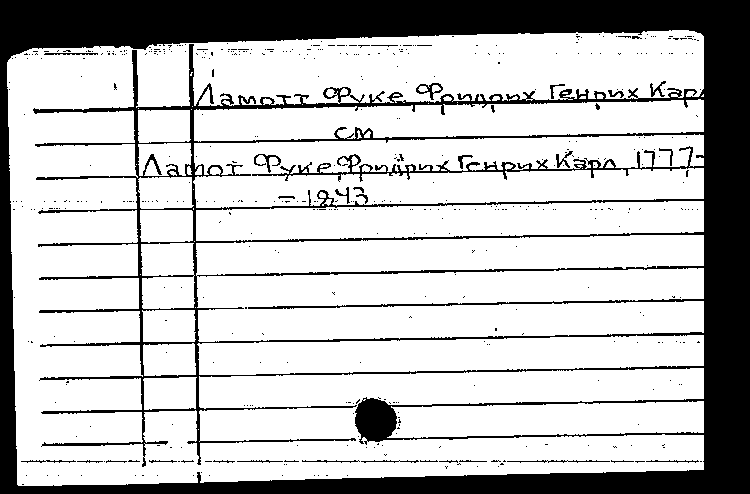 Ламотт Фуке, Фридрих Генрих Карл
см.
Ламот Фуке, Фридрих Генрих Карл, 1777-
- 1843